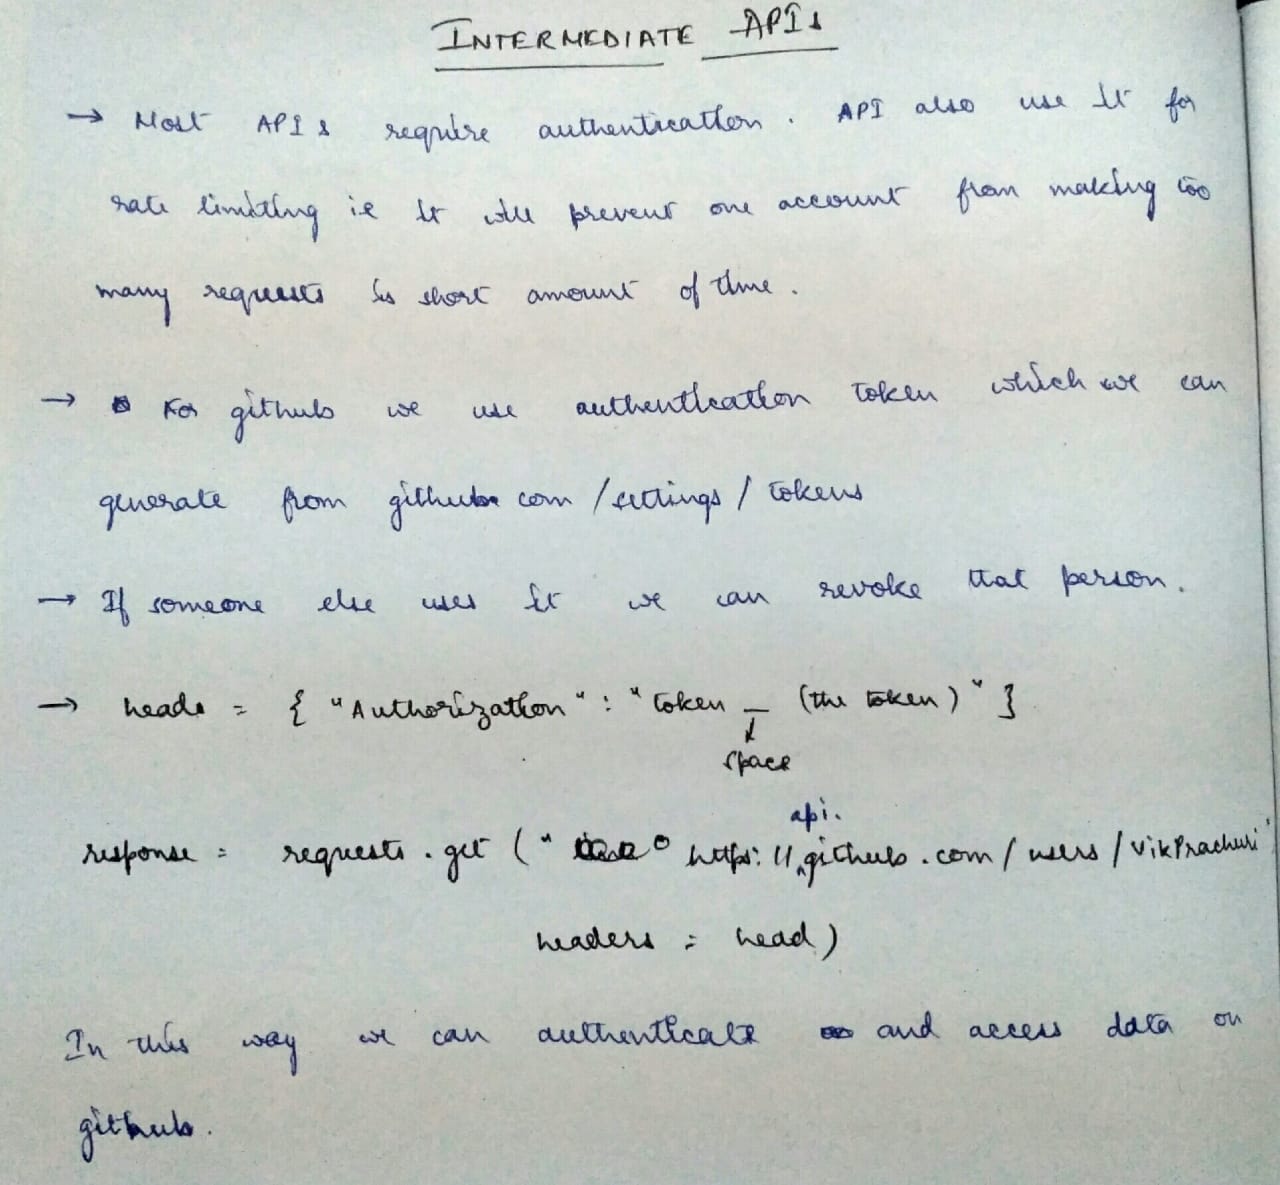 INTERMEDIATE APIs
→ Most APIs require authentication. API also use it for
rate limiting ie it will prevent one account from making too
many requests in short amount of time.
→ For github we use authentication token which we can
generate from github com / settings / tokens
→ If someone else uses it we can revoke that person.
→ heads = { "Authorization" : "token _ (the token)" }
↓
space
api.
response = requests.get (" https://github.com/users/VikPrachuri"
headers = head)
In this way we can authenticate and access data on
github.